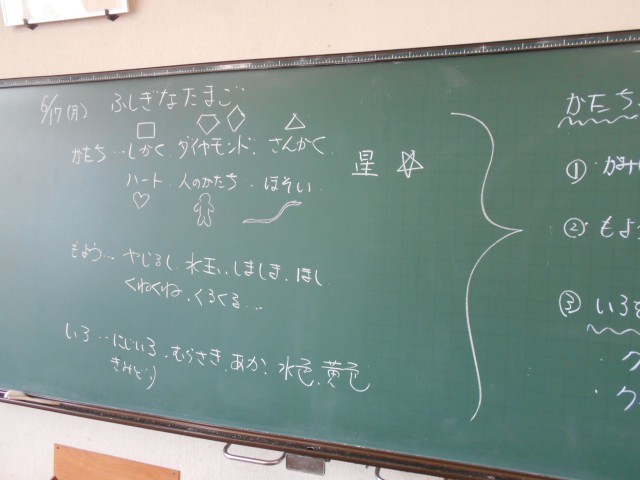 6/17(月) ふしぎなたまご
かたち…しかく ダイヤモンド. さんかく
ハート. 人のかたち. ほそい
星
もよう… やじるし. 水玉. しましま. ほし
くねくね. くるくる…
いろ…にじいろ. むらさき. あか. 水色. 黄色
きみどり
かたち
① かみ
② もよう
③ いろを
・ク
・ク